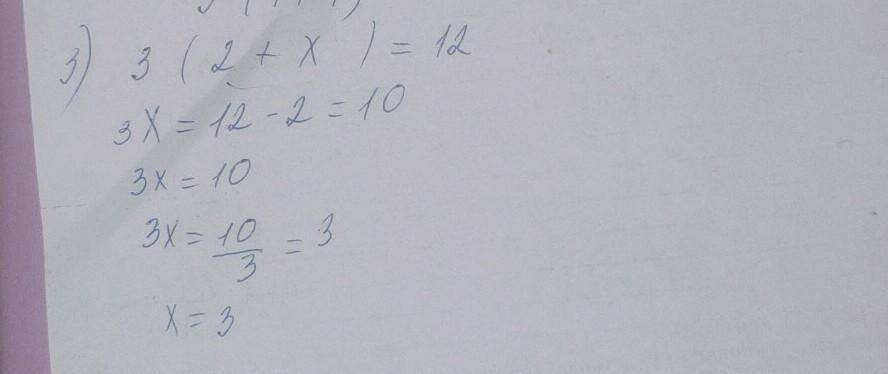 3) 3 ( 2 + x ) = 12
3x = 12 - 2 = 10
3x = 10
3x = 10/3 = 3
x = 3